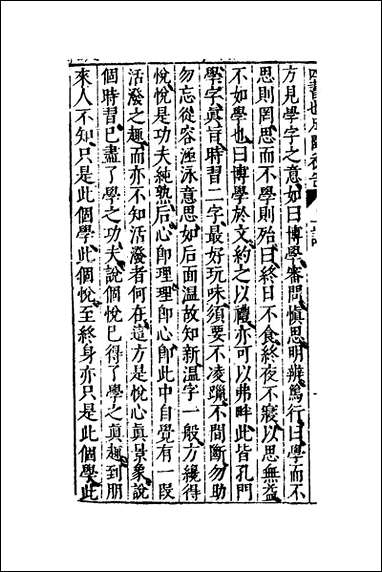 方見學字之意如曰博學審問慎思明辨篤行曰學而不
思則罔思而不學則殆曰終日不食終夜不寢以思無益
不如學也曰博學於文約之以禮亦可以弗畔此皆孔門
學字眞旨時習二字最好玩味須要不凌躐不間斷勿助
勿忘從容涵泳意思如后面温故知新温字一般方纔得
悅悅是功夫純熟后心卽理理卽心卽此中自覺有一段
活潑之趣而亦不知活潑者何在這方是悅心眞景象說
個時習已盡了學之功夫說個悅已得了學之眞趣到朋
來人不知只是此個學此個悅至終身亦只是此個學此